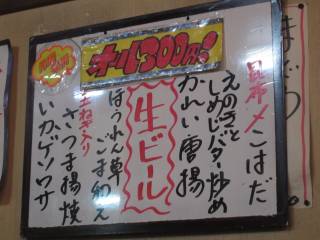 オール300円!
昆布〆こはだ
えのきと
しめじバター炒め
かれい唐揚
生ビール
ほうれん草
ごま和え
玉ねぎ入り
さつま揚焼
いかゲソワサ